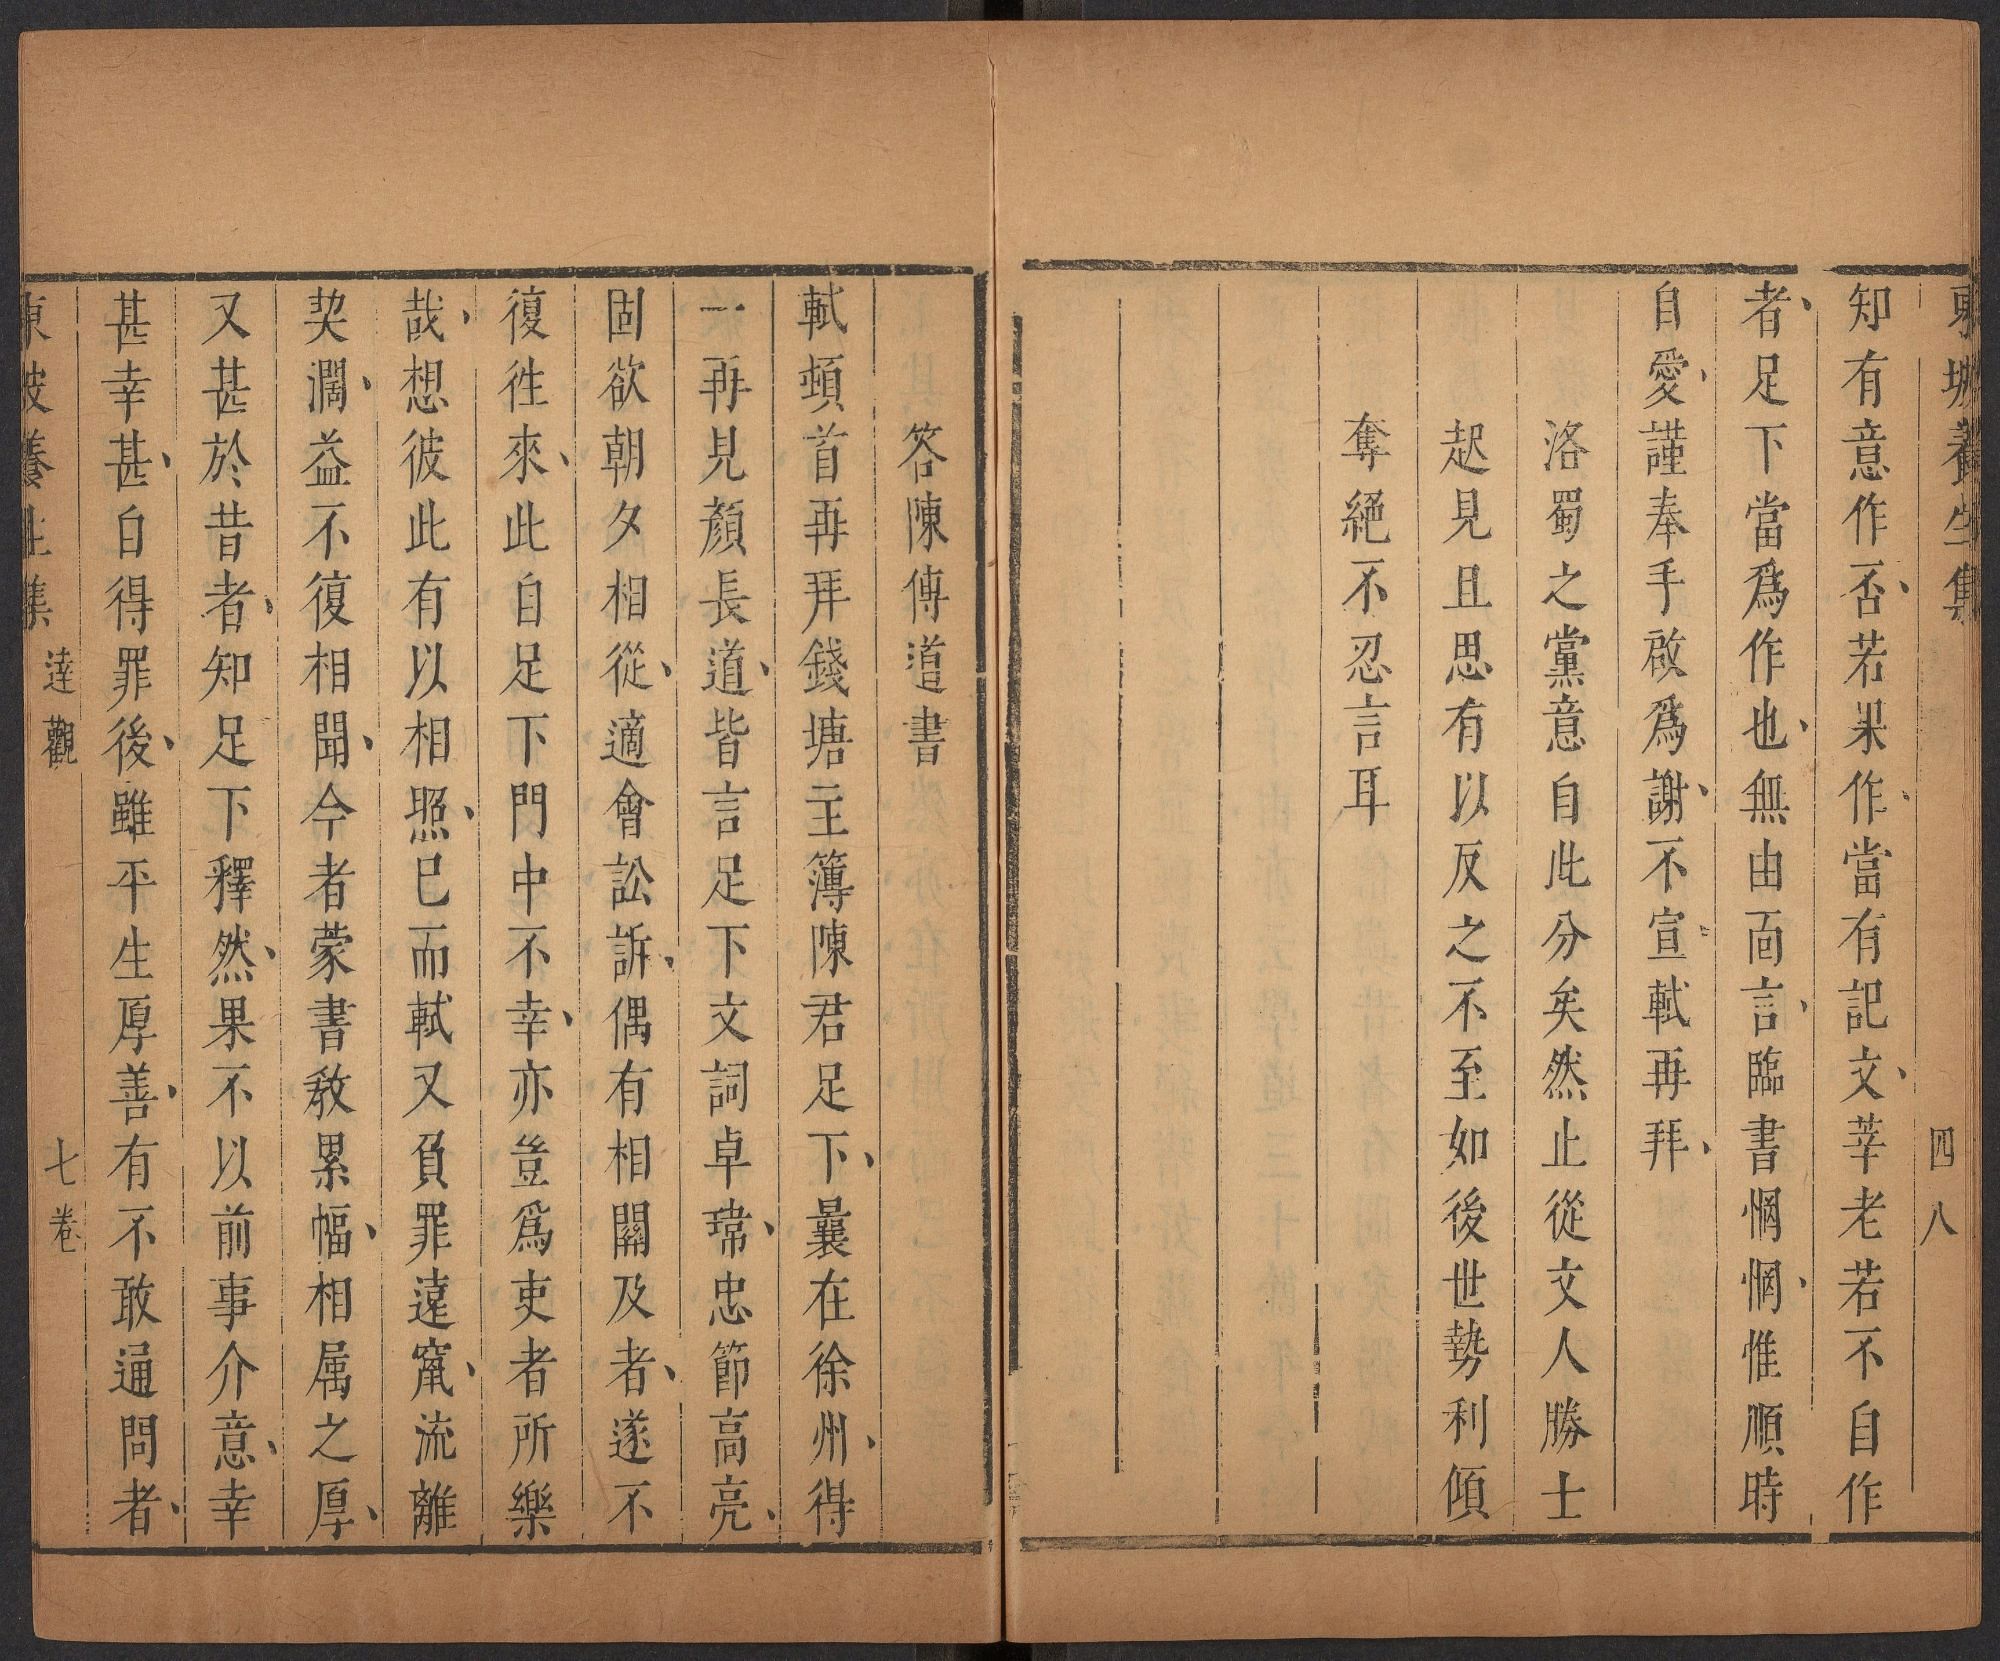 東坡養生集
四八
知有意作否、若果作、當有記文、莘老若不自作
者、足下當爲作也、無由面言、臨書惘惘、惟順時
自愛、謹奉手啟爲謝、不宣、軾再拜、
洛蜀之黨意自此分矣然止從文人勝士
起見且思有以反之不至如後世勢利傾
奪絕不忍言耳
答陳傳道書
軾頓首再拜錢塘主簿陳君足下、曩在徐州、得
一再見顏長道、皆言足下文詞卓瑋、忠節高亮、
固欲朝夕相從、適會訟訴、偶有相關及者、遂不
復徃來、此自足下門中不幸、亦豈爲吏者所樂
哉、想彼此有以相照、已而軾又負罪遠竄、流離
契濶、益不復相聞、今者蒙書教累幅、相属之厚、
又甚於昔者、知足下釋然、果不以前事介意、幸
甚幸甚、自得罪後、雖平生厚善、有不敢通問者、
東坡養生集
達觀
七卷